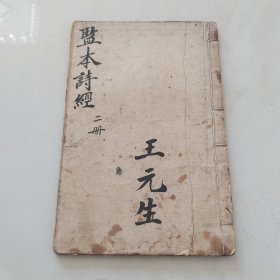 監本詩經
二册
王元生